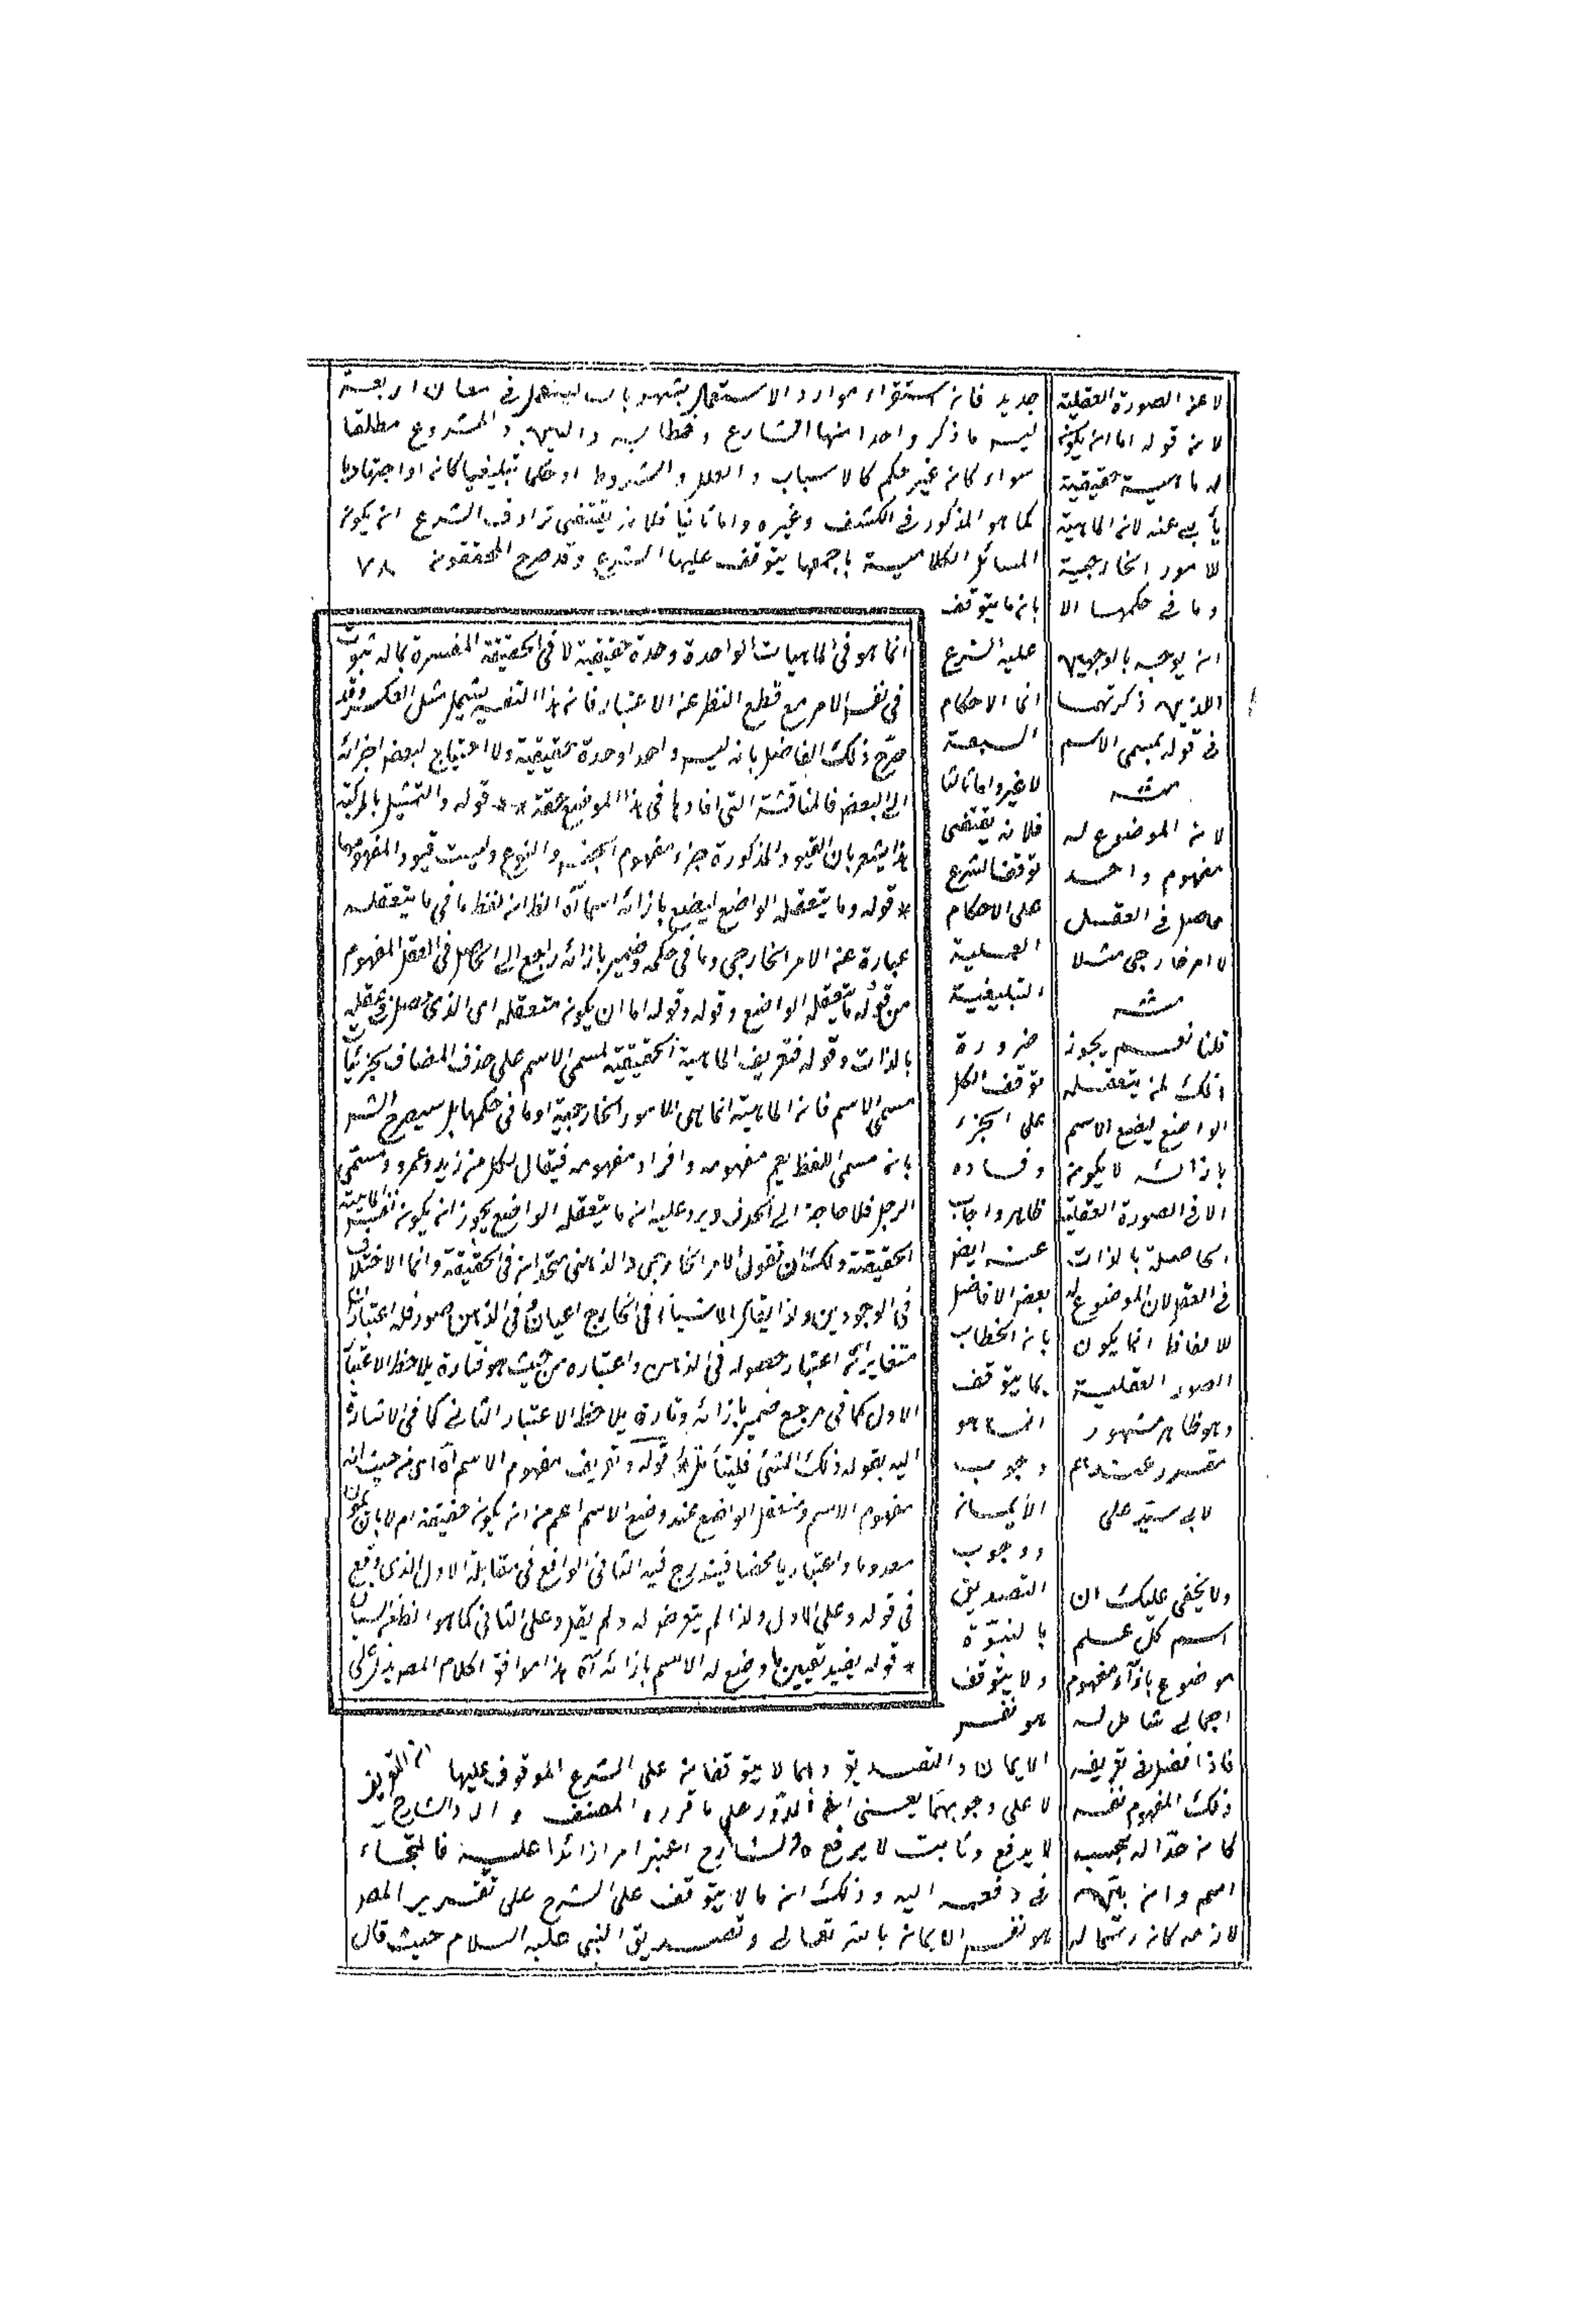 جديد فانه استقراء موارد الاستعمال يشهد بانه يستعمل في معان اربعة
ليس ما ذكر واحدا منها الشارع وخطابه والدين والمشروع مطلقا
سواء كانه غير حكم كالاسباب والعلل والشروط او حكما تبليغيا كانه او اجتهاديا
كما هو المذكور في الكشف وغيره واما ثانيا فلانه يقتضي ترادف الشرع انه يكونه
المسائل الكلامية باجمعها يتوقف عليها الشرع وقد صرح المحققونه
بانه ما يتوقف
عليه الشرع
انما الاحكام
السبعة
لا غير واما ثالثا
فلانه يقتضى
توقف الشرع
على الاحكام
العملية
التبليغية
ضرورة
توقف الكل
على الجزء
وفساده
ظاهر واجاب
عنه ايضا
بعض الافاضل
بانه الخطاب
بما يتوقف
انما هو
وجوب
الايمانه
ووجوب
التصديق
بالنبوة
ولا يتوقف
هو نفس
الايمان والتصديق وهما لا يتوقفانه على الشرع الموقوف عليها
لا على وجوبهما يعنى انه الدور على ما قرره المصنف والشارح
لا يدفع وثابت لا يرفع والشارح اعتبر امرا زائدا عليه فالتجاء
في دفعه اليه وذلك انه ما لا يتوقف على الشرع على تقرير المصـ
هو نفس الايمانه بالله تعالى وتصديق النبي عليه السلام حيث قال
انما هو في الماهيات الواحدة وحدة حقيقية لا في الحقيقة المفسرة بما له ثبوت
في نفس الامر مع قطع النظر عنه الاعتبار فانه هذا التفسير يشمل مثل العسكر وقد
صرح ذلك الفاضل بانه ليس واحدا وحدة حقيقية ولا احتياج لبعض اجزائه
الى البعض فالمناقشة التى افادها فى هذا الموضع حقة * قوله والتمثيل بالمركبة
هذا يشعر بان القيود المذكورة جزء مفهوم الجنس والنوع وليست قيود المفهومهما
* قوله وما يتعقله الواضع ليضع بازائه اسما آه الظ انه لفظ ما في ما يتعقله
عبارة عنه الامر الخارجي وما في حكمه وضمير بازائه راجع الى الحاصل في العقل المفهوم
من قوله ما يتعقله الواضع وقوله وقوله اما ان يكونه متعقله اى الذى حصل في عقله
بالذات وقوله فتعريف الماهية الحقيقية لمسمى الاسم على حذف المضاف
مسمى الاسم فانه الماهية انما هى الامور الخارجية او ما في حكمها بل سيصرح الشـ
بانه مسمى اللفظ يعم مفهومه وافراد مفهومه فيقال لكل منه زيد وعمرو مسمى
الرجل فلا حاجة الى الحذف ويرد عليه انه ما يتعقله الواضع يجوز انه يكونه نفس الماهية
الحقيقة ولك ان تقول الامر الخارجي والذهنى متحدانه في الحقيقة وانما الاختلاف
في الوجودين ولذا يقال الاشياء في الخارج اعيان وفى الذهن صور فله اعتباران
متغايرانه اعتبار حصوله في الذهن واعتباره من حيث هو فتارة يلاحظ الاعتبار
الاول كما في مرجع ضمير بازائه وتارة يلاحظ الاعتبار الثانى كما في الاشارة
اليه بقوله ذلك الشئ فليتأمل * قوله وتعريف مفهوم الاسم آه اى منه حيث انه
مفهوم الاسم ومتعقل الواضع عند وضع الاسم اعم منه انه يكونه حقيقة ام لا بان يكون
معدوما واعتباريا محضا فيندرج فيه الثانى الواقع في مقابلة الاول الذى وقع
في قوله وعلى الاول ولذا لم يتعرض له ولم يقل وعلى الثانى كما هو
* قوله يفيد تعيين ما وضع له الاسم بازائه آه هذا موافق الكلام المصـ
لا عنه الصورة العقلية
لانه قوله اما انه يكونه
له ماهية حقيقية
يأبى عنه لانه الماهية
للامور الخارجية
وما في حكمها الا
انه يوجه بالوجهين
اللذين ذكرتهما
في قوله بمسمى الاسم
منه
لانه الموضوع له
مفهوم واحد
حاصل في العقل
لا امر خارجى مثلا
منه
قلنا نعم يجوز
ذلك لمن يتعقله
الواضع ليضع الاسم
بازائه لا يكونه
الا في الصورة العقلية
الحاصلة بالذات
في العقل لان الموضوع له
للالفاظ انما يكون
الصور العقلية
وهو ظاهر مشهور
مقرر عندهم
لابى سيد على
ولا يخفى عليك ان
اسم كل علم
موضوع بازاء مفهوم
اجمالى شامل له
فاذا فصل في تعريفه
ذلك المفهوم نفسه
كانه حدا له بحسب
اسمه وانه بينه
لازمه كانه رسما له